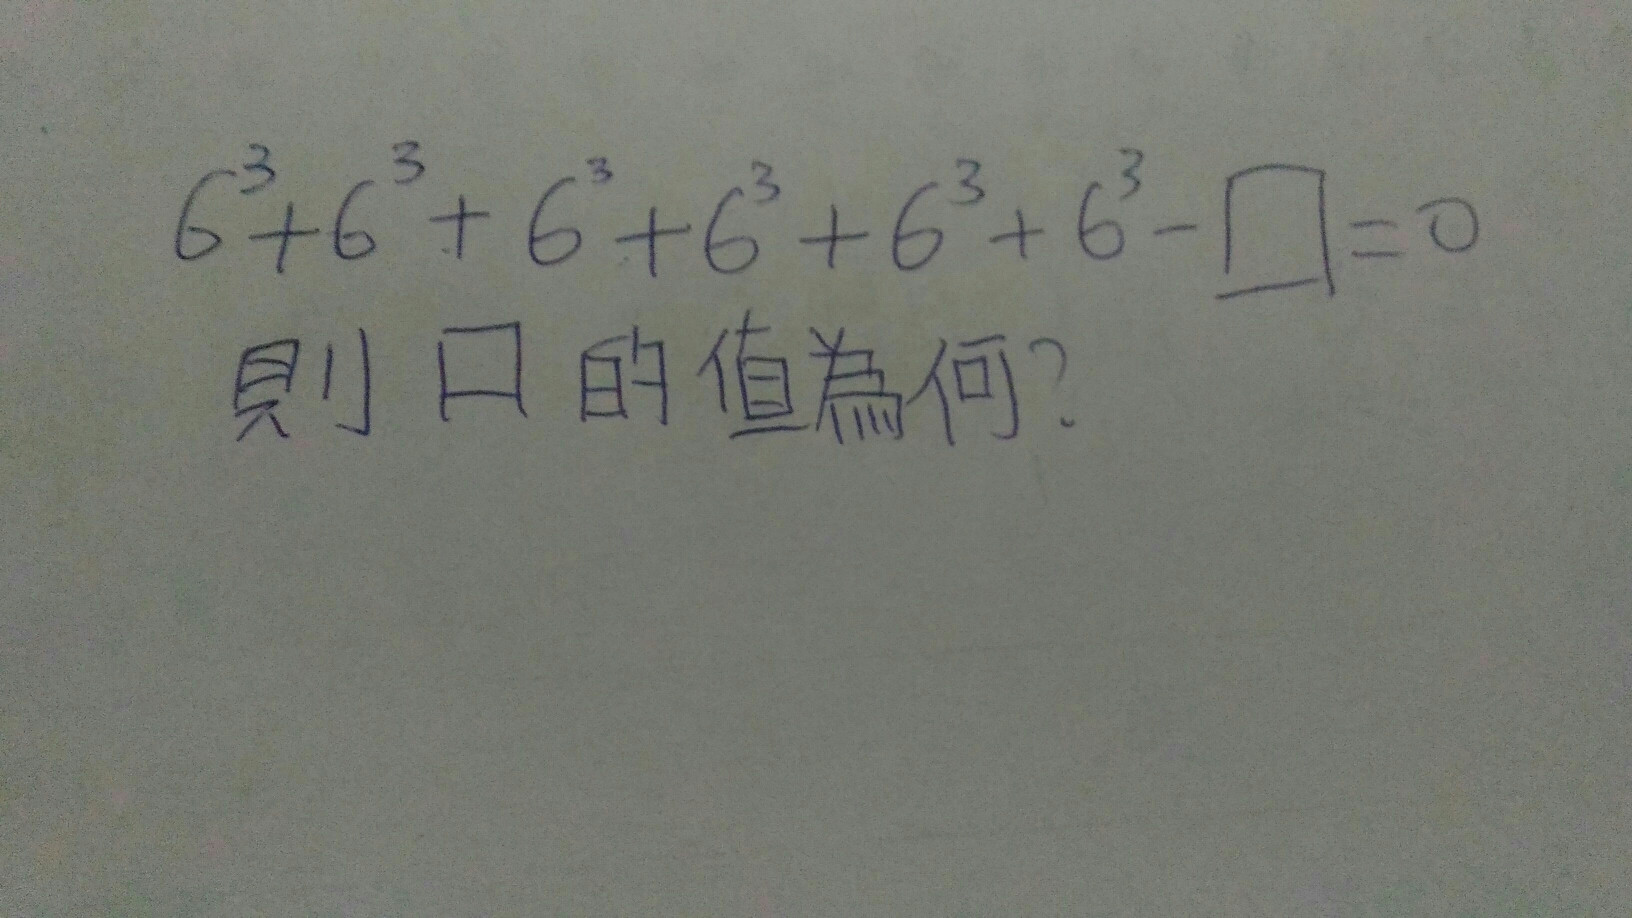 6³+6³+6³+6³+6³+6³-□=0
則□的值為何?